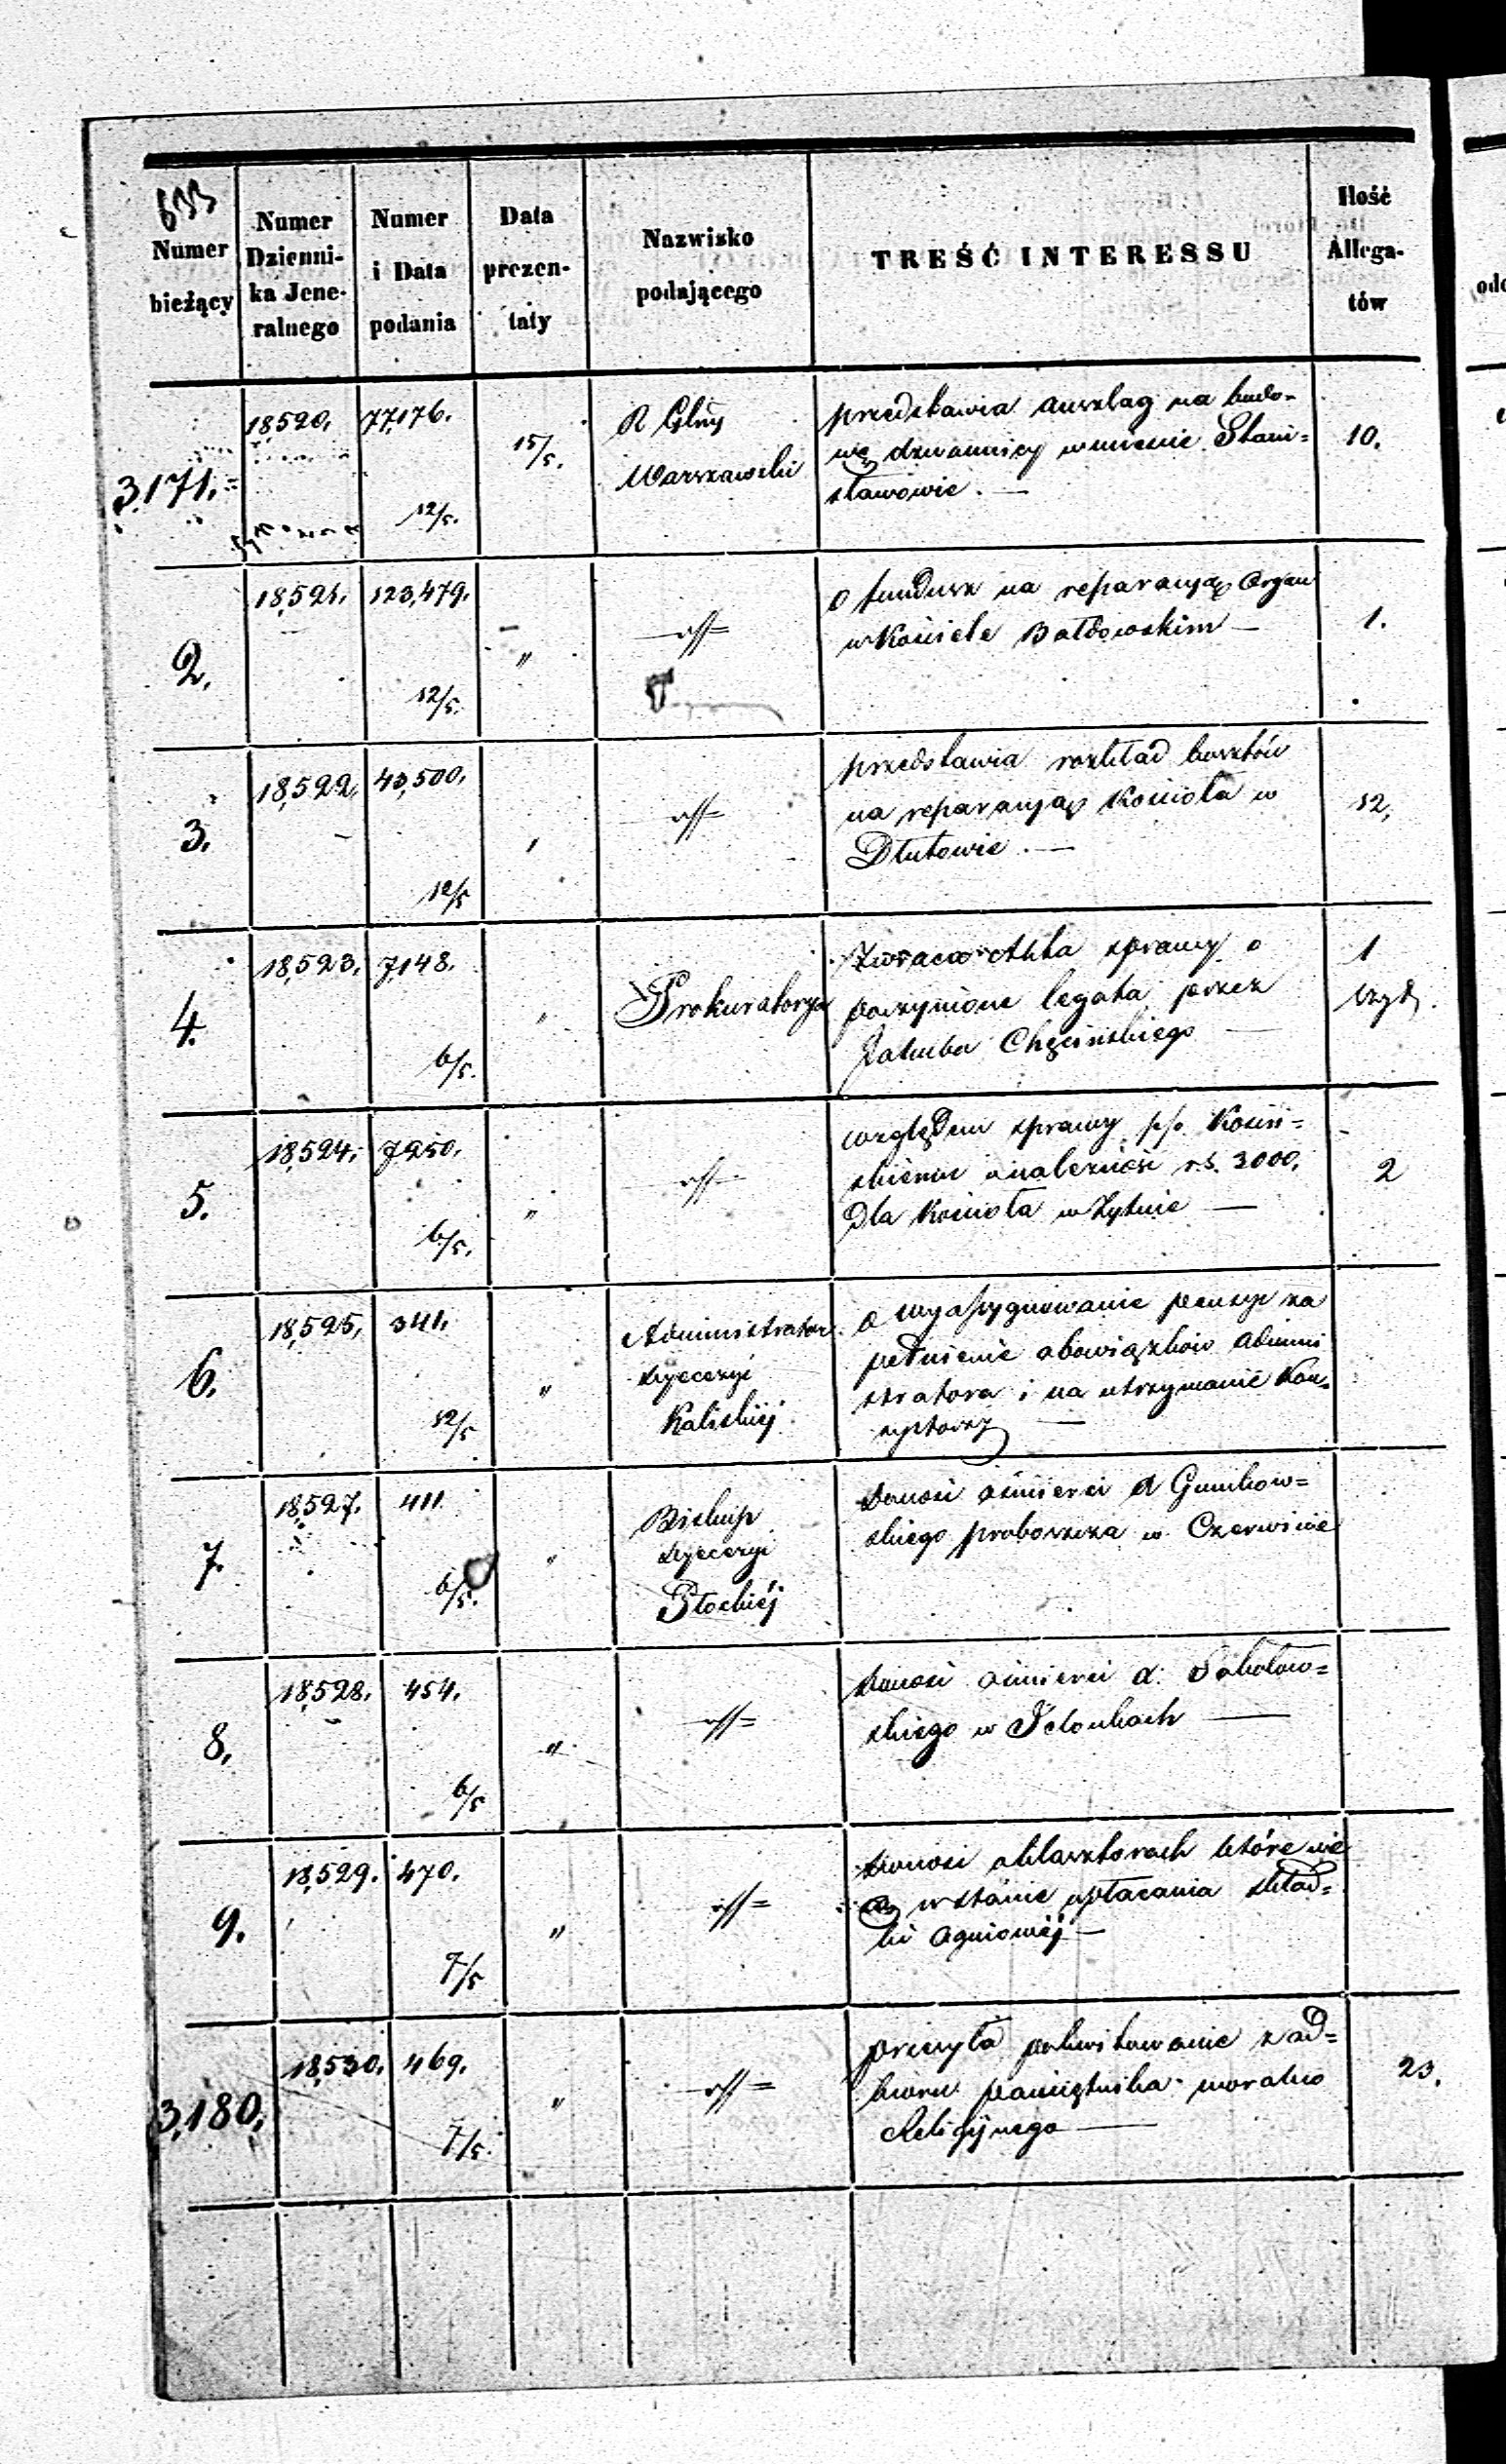 633
Numer bieżący
Numer Dzienni-ka Jene-ralnego
Numer i Data podania
Data prezen-taty
Nazwisko podającego
TREŚĆ INTERESSU
Ilość Allega-tów
3,171.
18520.
77,176.
12/5.
15/5.
R Glny
Warszawski
przedstawia anszlag na budo-
wę dzwonnicy w mieście Stani=
sławowie. —
10.
2.
18,521.
123,479.
12/5.
"
o fundusz na reparacyą organ
w Kościele Bałdowskim —
1.
3.
18,522,
43,500,
12/5
"
przedstawia rozkład kosztów
na reparacyą Kościoła w
Dłutowie. —
12,
4.
18,523.
7,148.
6/5.
"
Prokuratorya
Zwraca Akta sprawy o
poczynione legata przez
Jakuba Chęcińskiego —
1
5.
18,524.
7250.
6/5.
"
względem sprawy p/o Kosiń=
skiemu o należność rs. 3000.
dla Kościoła w Żytnie —
2
6.
18,525,
341.
12/5
"
Administrator
dyecezyi
Kaliskiéj
o wyassygnowanie pensyi za
pełnienie obowiązków admini
stratora i na utrzymanie Kon=
systorzy —
7.
18,527.
411
6/5.
"
Biskup
dyecezyi
Płockiéj
donosi o śmierci
skiego proboszcza w Czerwinie
8.
18,528.
454.
6/5
"
donosi o śmierci X. Sokołow=
skiego w —
9.
18,529.
470.
7/5
"
donosi o klasztorach które nie
są w stanie opłacania skład=
ki ogniowéj —
3,180.
18,530.
469.
7/5.
"
przesyła pokwitowanie z od=
bioru pamiętnika moralno
Religijnego —
23.